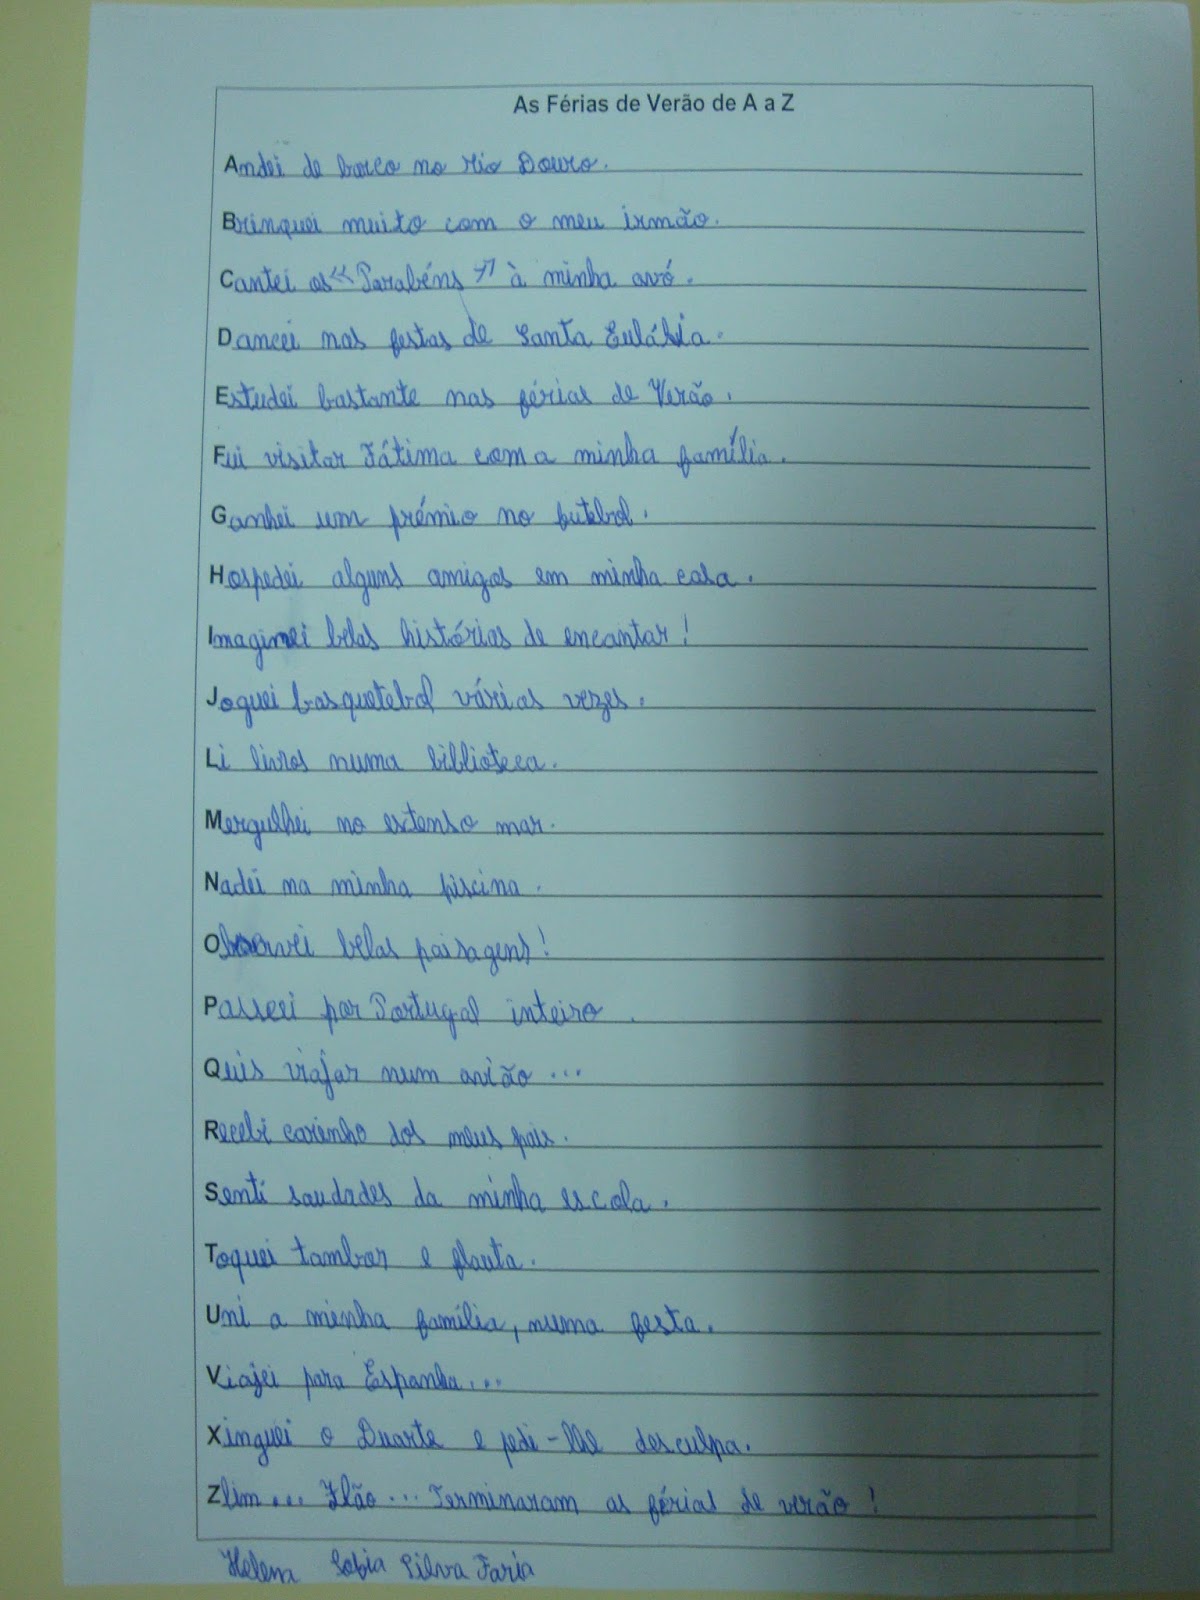 As Férias de Verão de A a Z
Andei de barco no rio Douro.
Brinquei muito com o meu irmão.
Cantei os «Parabéns» à minha avó.
Dancei nas festas de Santa Eulália.
Estudei bastante nas férias de Verão.
Fui visitar Fátima com a minha família.
Ganhei um prémio no futebol.
Hospedei alguns amigos em minha casa.
Imaginei belas histórias de encantar!
Joguei basquetebol várias vezes.
Li livros numa biblioteca.
Mergulhei no extenso mar.
Nadei na minha piscina.
Observei belas paisagens!
Passeei por Portugal inteiro.
Quis viajar num avião...
Recebi carinho dos meus pais.
Senti saudades da minha escola.
Toquei tambor e flauta.
Uni a minha família, numa festa.
Viajei para Espanha...
Xinguei o Duarte e pedi-lhe desculpa.
Zlim... Zlão... Terminaram as férias de verão!
Helena Sofia Silva Faria